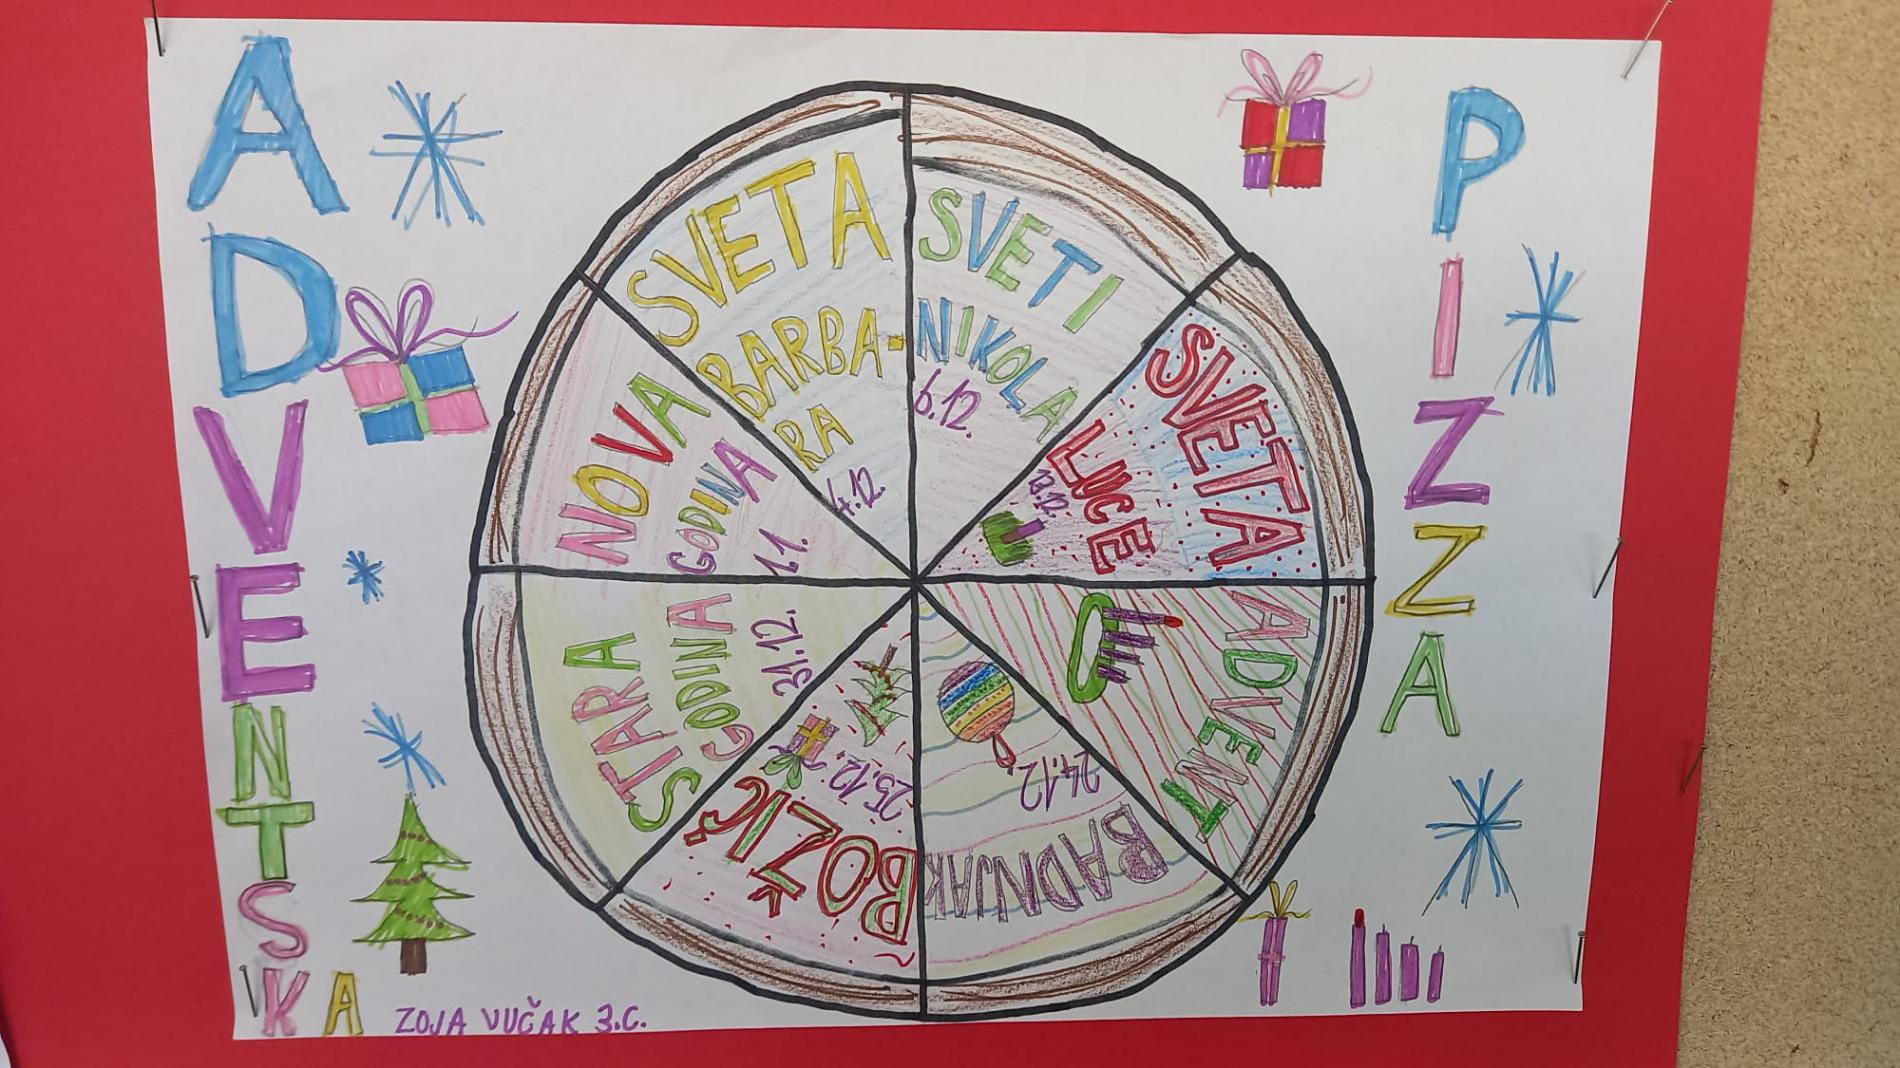 ADVENTSKA
PIZZA
SVETA
BARBA-
RA
4.12.
SVETI
NIKOLA
6.12.
SVETA
LUCE
13.12.
ADVENT
BADNJAK
24.12.
BOŽIĆ
25.12.
STARA
GODINA
31.12.
NOVA
GODINA
1.1.
ZOJA VUČAK 3.C.